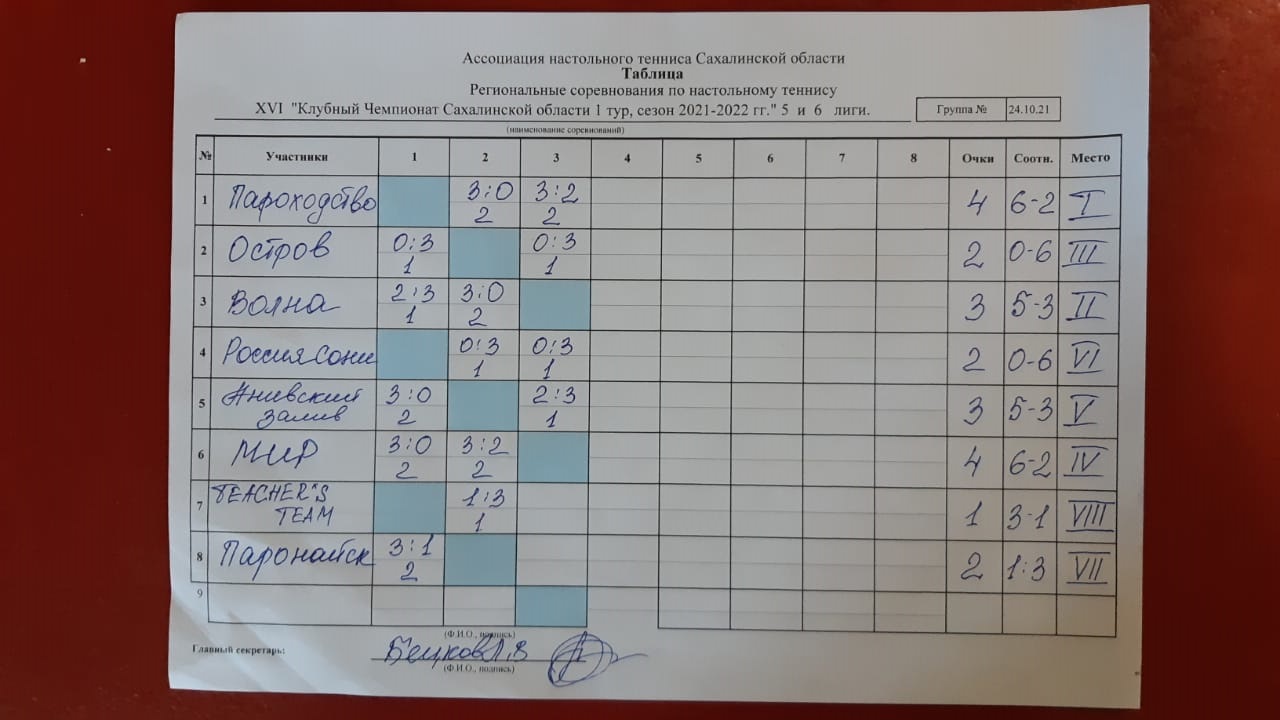 Ассоциация настольного тенниса Сахалинской области
Таблица
Региональные соревнования по настольному теннису
XVI "Клубный Чемпионат Сахалинской области 1 тур, сезон 2021-2022 гг." 5 и 6 лиги.
Группа № 24.10.21
(наименование соревнований)
№ Участники 1 2 3 4 5 6 7 8 Очки Соотн. Место
1 Пароходство 3:0 3:2 4 6-2 I
2 2
2 Остров 0:3 0:3 2 0-6 III
1 1
3 Волна 2:3 3:0 3 5-3 II
1 2
4 Россия Сони 0:3 0:3 2 0-6 VI
1 1
5 Анивский 3:0 2:3 3 5-3 V
залив 2 1
6 Мир 3:0 3:2 4 6-2 IV
2 2
7 TEACHER'S 1:3 1 3-1 VIII
TEAM 1
8 Паронайск 3:1 2 1:3 VII
2
9
(Ф.И.О., подпись)
Главный секретарь:
(Ф.И.О., подпись)